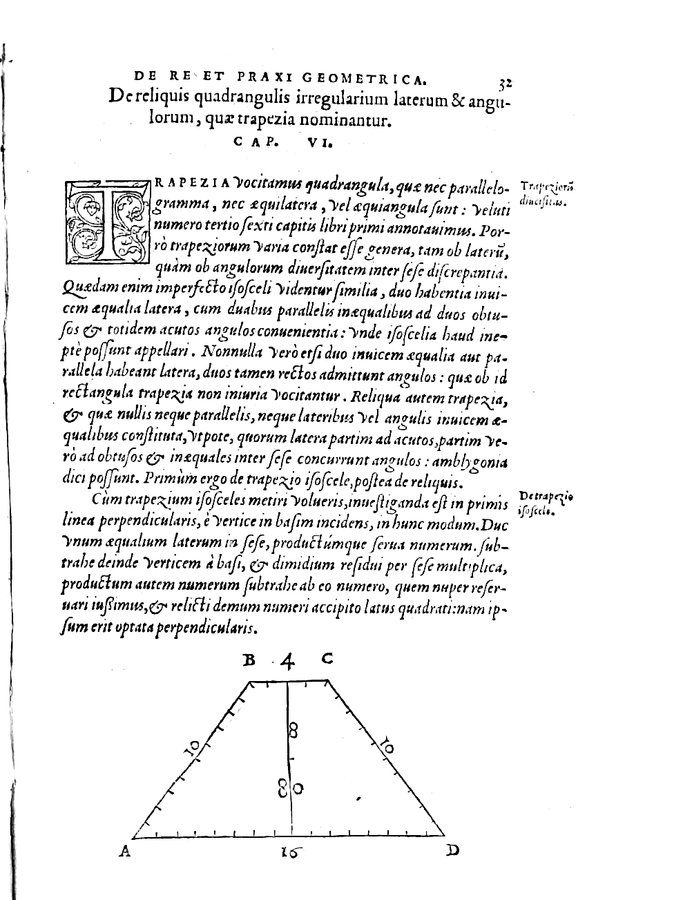 DE RE ET PRAXI GEOMETRICA. 32
De reliquis quadrangulis irregularium laterum & angu-
lorum, quæ trapezia nominantur.
CAP. VI.
TRAPEZIA vocitamus quadrangula, quæ nec parallelo-
gramma, nec æquilatera, vel æquiangula sunt: veluti
numero tertio sexti capitis libri primi annotauimus. Por-
rò trapeziorum varia constat esse genera, tam ob laterũ,
quàm ob angulorum diuersitatem inter sese discrepantia.
Quædam enim imperfecto isosceli videntur similia, duo habentia inui-
cem æqualia latera, cum duabus parallelis inæqualibus ad duos obtu-
sos & totidem acutos angulos conuenientia: vnde isoscelia haud ine-
ptè possunt appellari. Nonnulla verò etsi duo inuicem æqualia aut pa-
rallela habeant latera, duos tamen rectos admittunt angulos: quæ ob id
rectangula trapezia non iniuria vocitantur. Reliqua autem trapezia,
& quæ nullis neque parallelis, neque lateribus vel angulis inuicem æ-
qualibus constituta, vtpote, quorum latera partim ad acutos, partim ve-
rò ad obtusos & inæquales inter sese concurrunt angulos: amblygonia
dici possunt. Primùm ergo de trapezio isoscele, postea de reliquis.
Cùm trapezium isosceles metiri volueris, inuestiganda est in primis
linea perpendicularis, è vertice in basim incidens, in hunc modum. Duc
vnum æqualium laterum in sese, productúmque serua numerum. sub-
trahe deinde verticem à basi, & dimidium residui per sese multiplica,
productum autem numerum subtrahe ab eo numero, quem nuper reser-
uari iussimus, & relicti demum numeri accipito latus quadrati: nam ip-
sum erit optata perpendicularis.
Trapeziorũ
diuersitas.
De trapezio
isoscele.
B 4 C
10 8 10
80
A 16 D